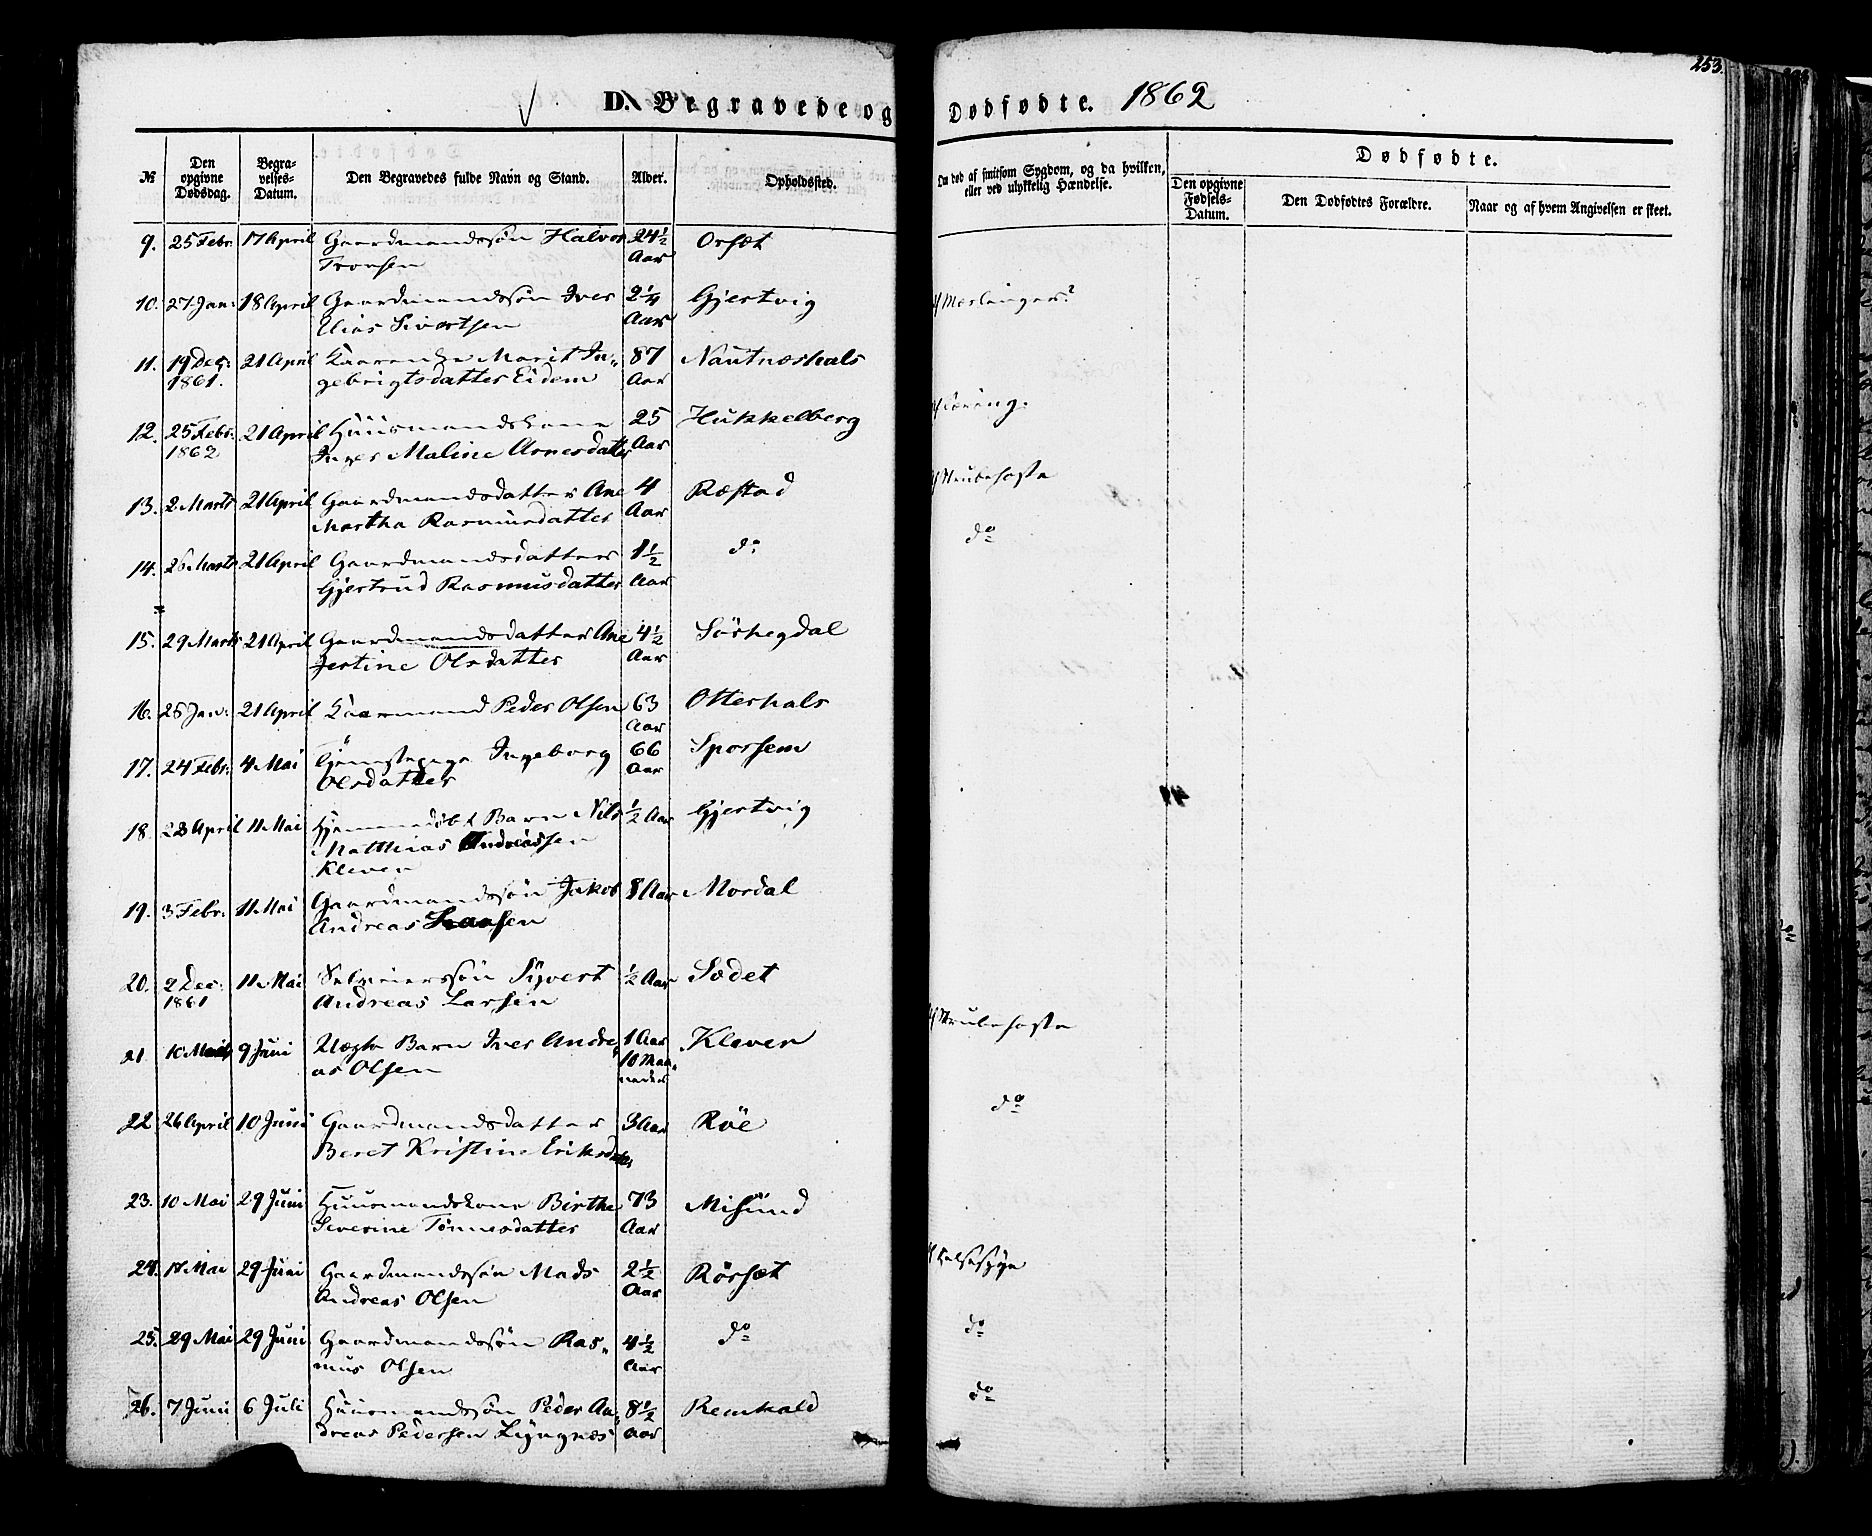 253.
D. Begravede og Dødfødte. 1862
№
Den opgivne Dødsdag.
Begravelses-Datum.
Den Begravedes fulde Navn og Stand.
Alder.
Opholdssted.
Om død af smitsom Sygdom, og da hvilken, eller ved ulykkelig Hændelse.
Dødfødte.
Den opgivne Fødsels-Datum.
Den Dødfødtes Forældre.
Naar og af hvem Angivelsen er skeet.
9. 25 Febr: 17 April Gaardmandssøn Halvor 24½ Orsæt
Tronsen Aar
10. 27 Jan: 18 April Gaardmandssøn Iver 2¼ Gjertvig
Elias Sivertsen Aar
11. 19 Dec: 21 April Marit In- 87 Nautneshals
1861. gebrigtsdatter Eidem Aar
12. 25 Febr: 21 April Huusmandskone 25 Hukkelberg
1862 Inger Maline Arnesdatter Aar
13. 2 Marts 21 April Gaardmandsdatter Ane 4 Ræstad Strubehoste
Martha Rasmusdatter Aar
14. 26 Marts 21 April Gaardmandsdatter 1½ do do
Gjertrud Rasmusdatter Aar
15. 29 Marts 21 April Gaardmandsdatter Ane 4½ Sörhegdal
Jertine Olsdatter Aar
16. 28 Jan: 21 April Kaarmand Peder Olsen 63 Otterhals
Aar
17. 24 Febr: 4 Mai Ingeborg 66 Sporsem
Olsdatter Aar
18. 28 April 11 Mai Barn Nils ½ Aar Gjertvig
Matthias Andreassen
Kleven
19. 3 Febr: 11 Mai Gaardmandssøn Jakob 8 Aar Mordal
Andreas
20. 2 Dec: 11 Mai Sivert ½ Aar Sædet
1861 Andreas Larsen
21. 9 Juni Uægte Barn Iver Andre- 1 Aar Kleven Strubehoste
as Olsen 10 Maa-
neder
22. 26 April 10 Juni Gaardmandsdatter 3 Aar Röe do
Beret Kristine Eriksdatter
23. 10 Mai 29 Juni Huusmandskone Birthe 73 Misund
Severine Tönnesdatter Aar
24. 17 Mai 29 Juni Gaardmandssøn Mads 2½ Rörsæt Halssyge
Andreas Olsen Aar
25. 29 Mai 29 Juni Gaardmandssøn Ras- 4½ do do
mus Olsen Aar
26. 7 Juni 6 Juli Huusmandssøn Peder An- 8½ Remkald do
dreas Pedersen Lyngnæs Aar